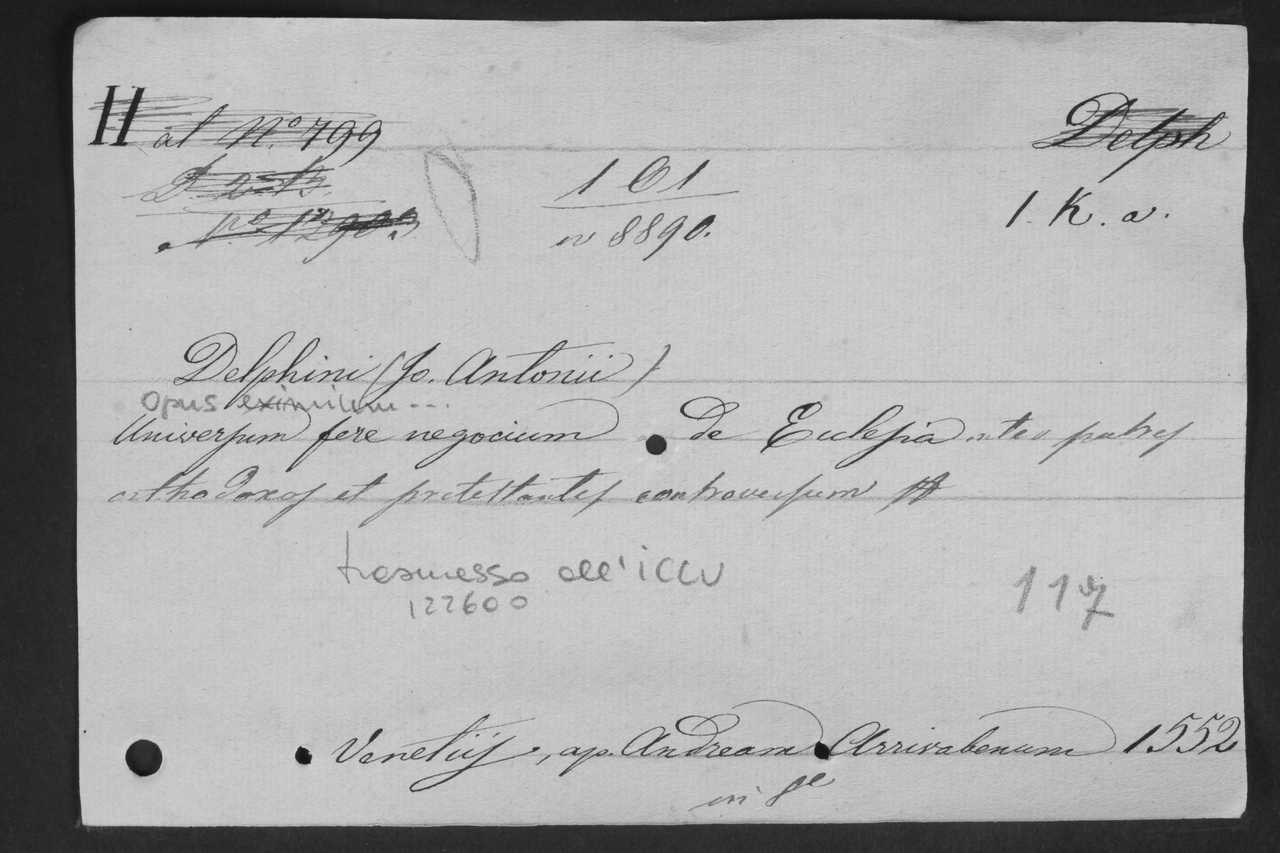 H al N.° 799
Delph
101
n 8890.
1. K. a.
Delphini (Jo. Antonii)
Opus eximium...
Universum fere negocium de Eclesia inter patres
orthodoxos et protestantes controversum #
trasmesso all'ICCU
122600
117
Venetiis, ap. Andream Arrivabenum 1552
in 8e